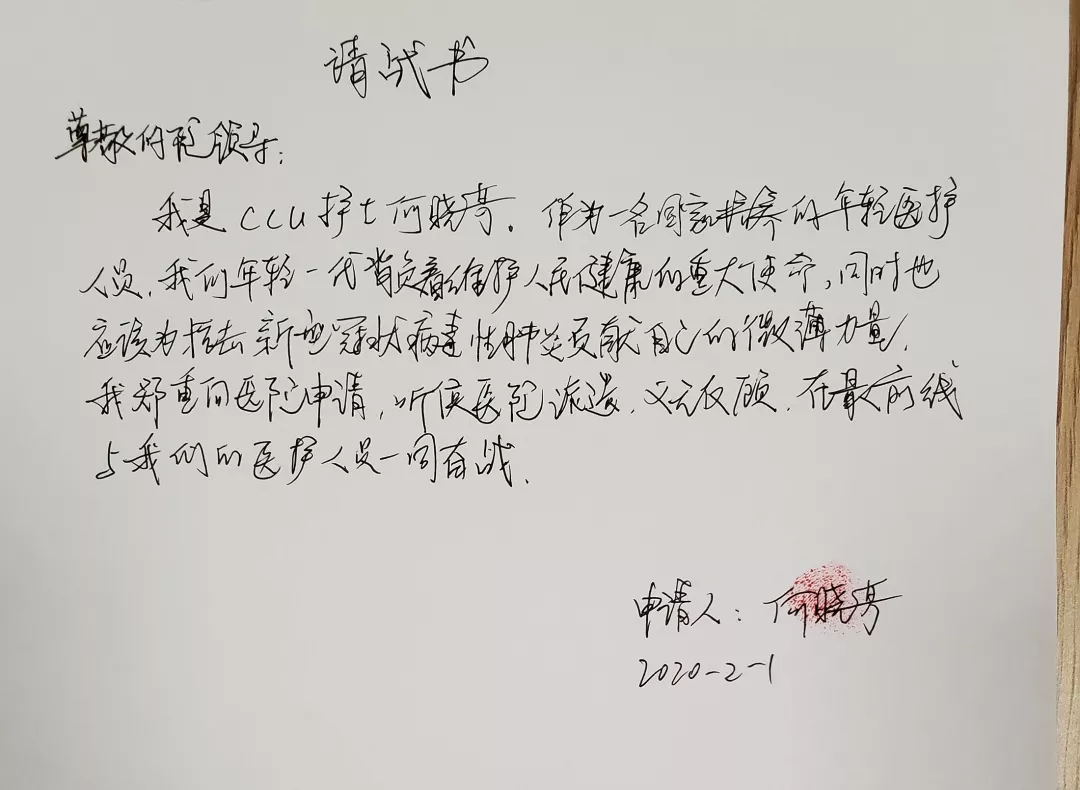 请战书
尊敬的院领导:
我是CCU护士何晓亭。作为一名国家培养的年轻医护
人员,我们年轻一代背负着维护人民健康的重大使命,同时也
应该为抗击新型冠状病毒性肺炎贡献自己的微薄力量,
我郑重向医院申请,听候医院派遣,义无反顾,在最前线
与我们的医护人员一同奋战。
申请人:何晓亭
2020-2-1